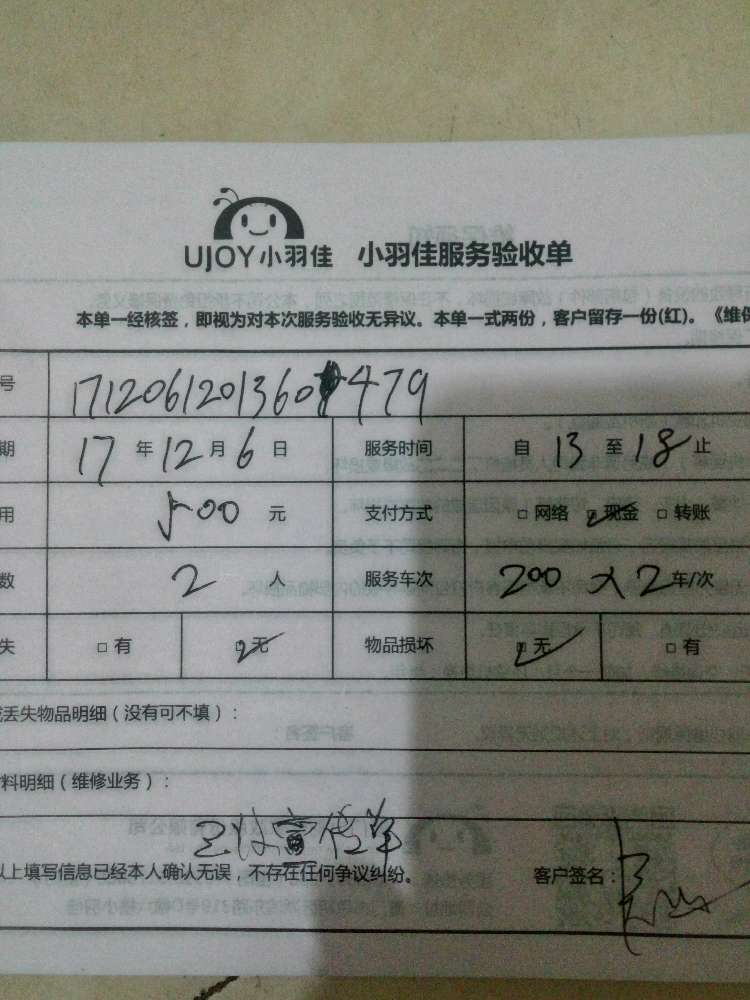 UJOY小羽佳 小羽佳服务验收单
本单一经核签，即视为对本次服务验收无异议。本单一式两份，客户留存一份(红)。《维保
号 1712061201360 479
期 17 年 12 月 6 日 服务时间 自 13 至 18 止
用 500 元 支付方式 □ 网络 □ 现金 □ 转账
数 2 人 服务车次 200 X 2 车/次
失 □ 有 □ 无 物品损坏 □ 无 □ 有
丢失物品明细（没有可不填）:
料明细（维修业务）:
以上填写信息已经本人确认无误，不存在任何争议纠纷。 客户签名: